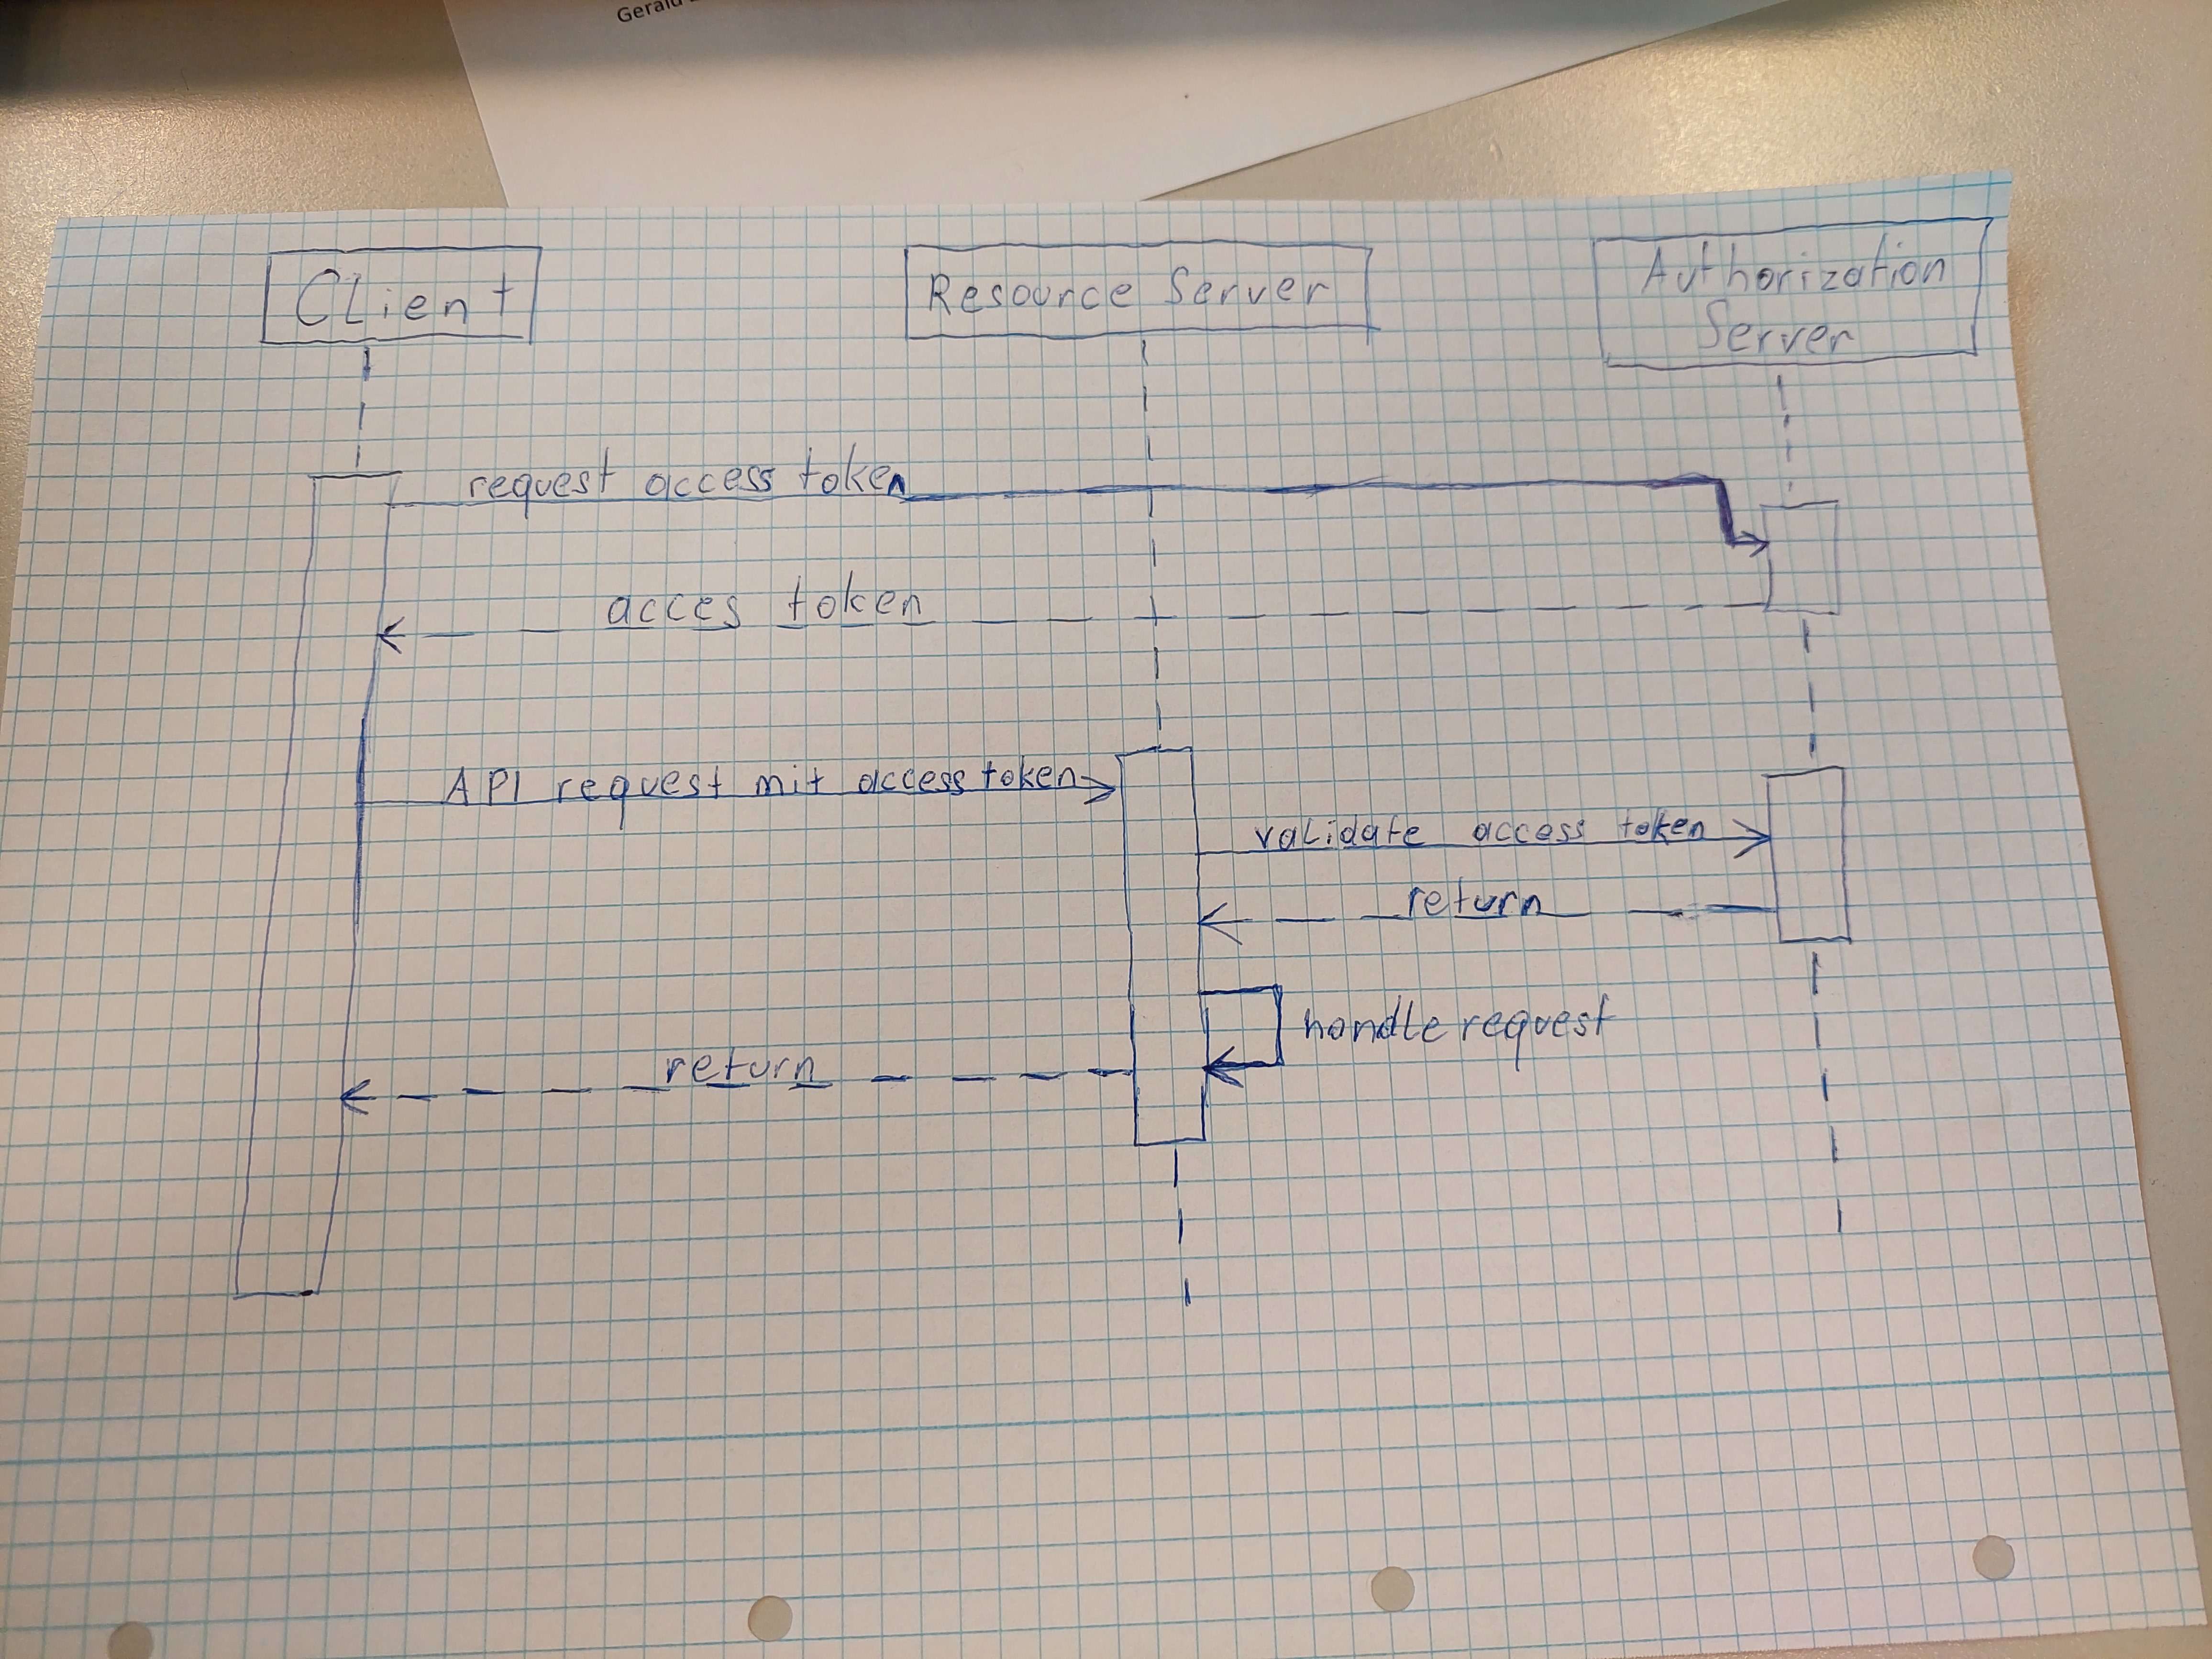 Gerald
CLient
Resource Server
Authorization
Server
request access token
acces token
API request mit access token
validate access token
return
handle request
return